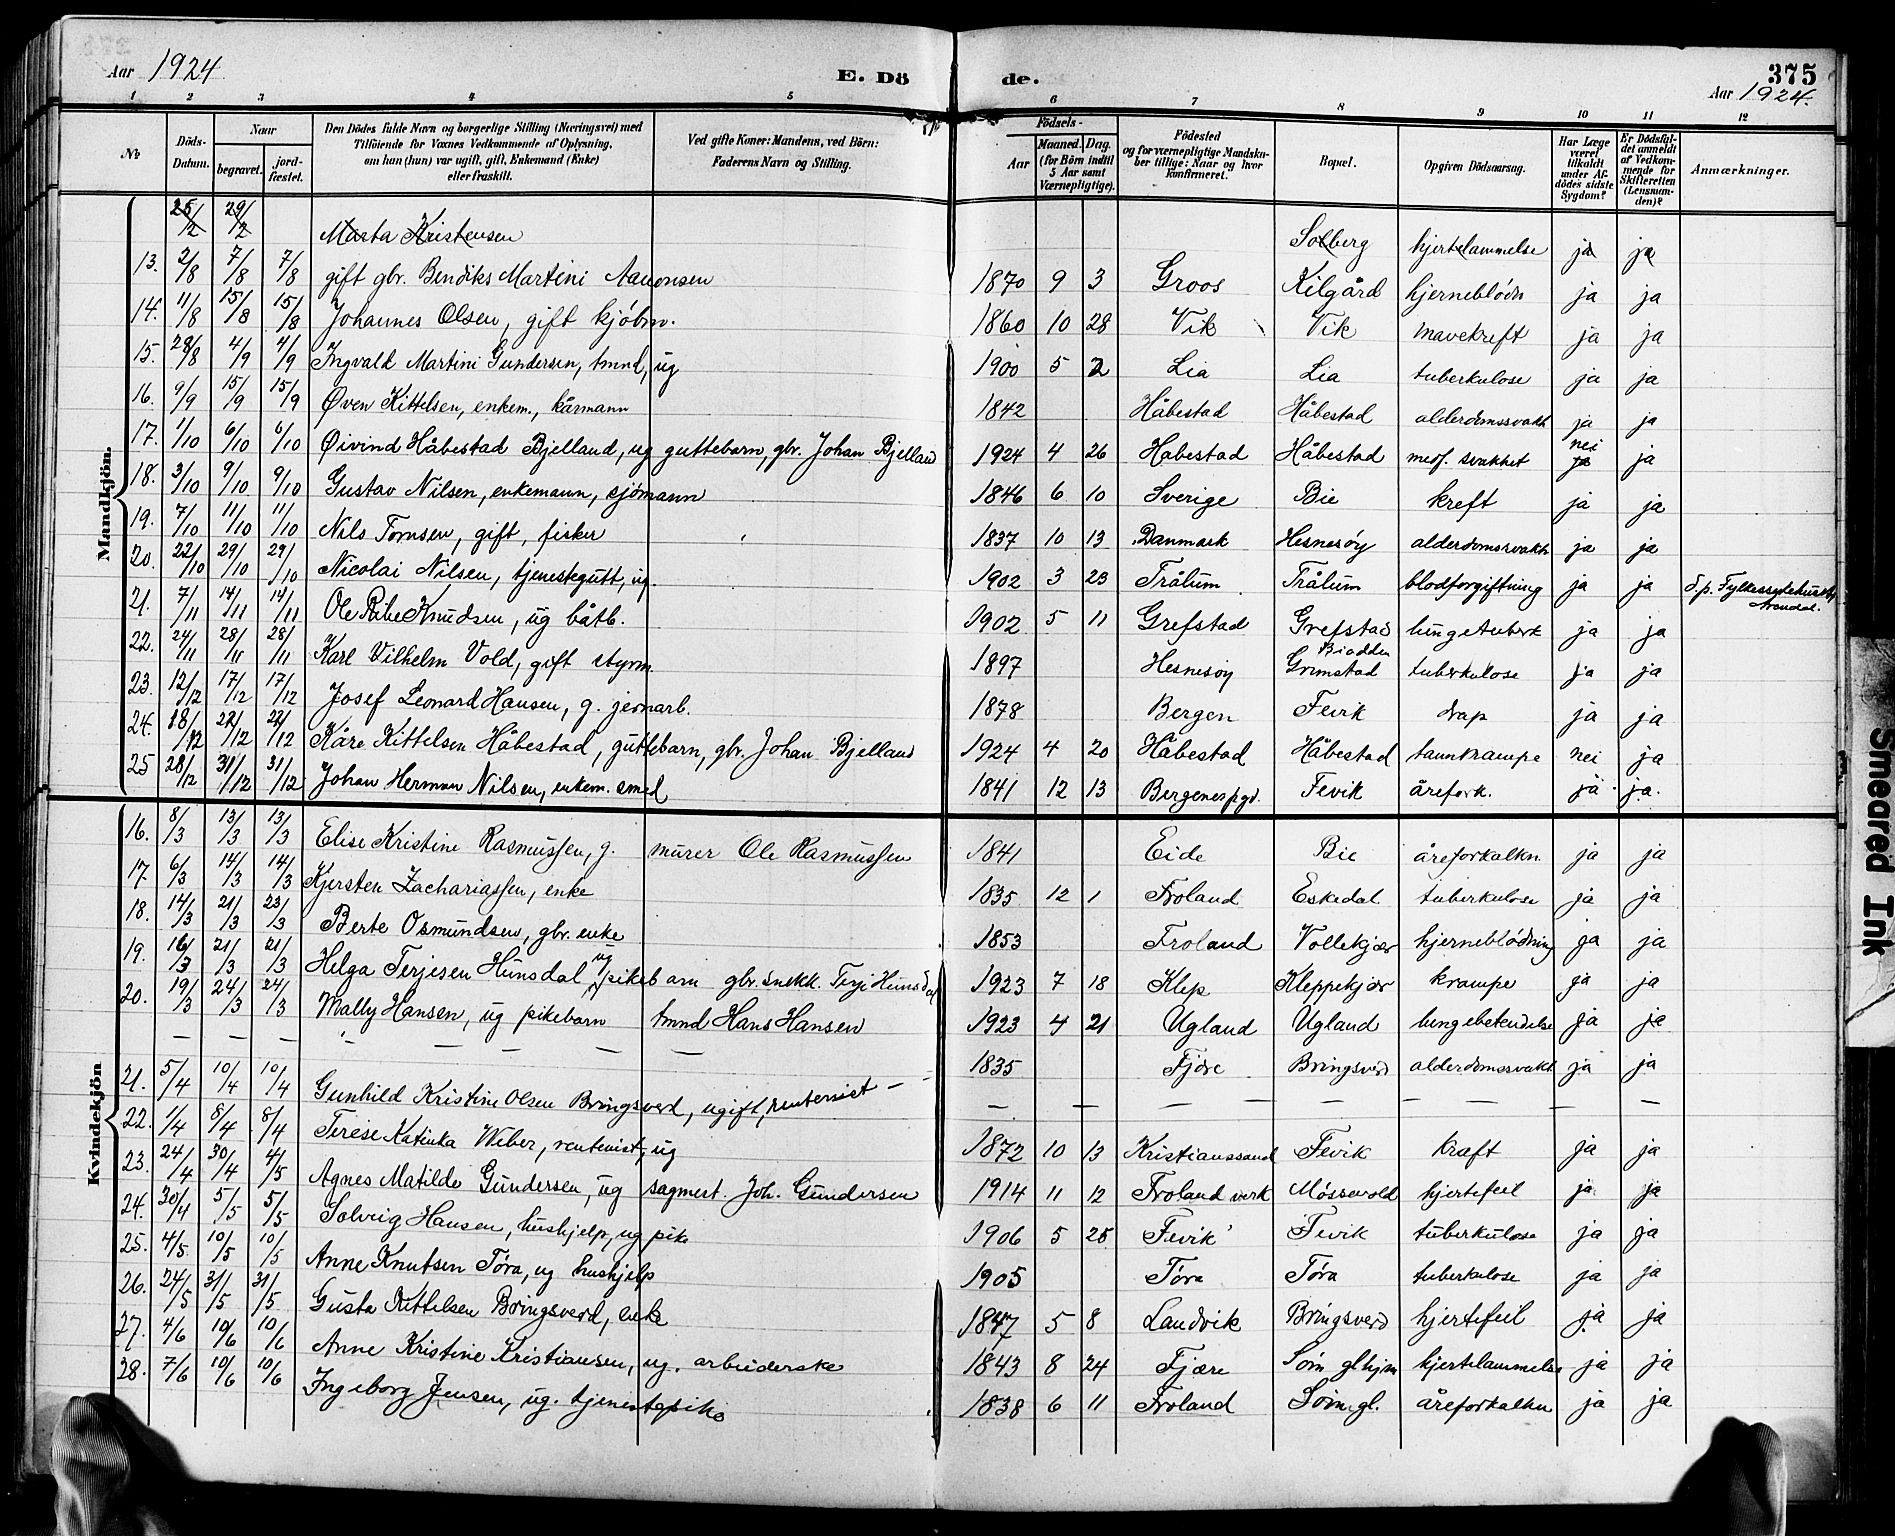 Aar 1924
E. Dö
de.
375
Aar 1924.
1 2 3 4 5 6 7 8 9 10 11 12
No
Döds-Datum.
Naar
begravet.
jord-fæstet.
Den Dödes fulde Navn og borgerlige Stilling (Næringsvei) med
Tilföiende for Voxnes Vedkommende af Oplysning,
om han (hun) var ugift, gift, Enkemand (Enke)
eller fraskilt.
Ved gifte Koner: Mandens, ved Börn:
Faderens Navn og Stilling.
Födsels-
Aar
Maaned. Dag.
(for Börn indtil
5 Aar samt
Værnepligtige).
Födested
og for værnepligtige Mandska-
ber tillige: Naar og hvor
konfirmeret.
Bopæl.
Opgiven Dödsaarsag.
Har Læge
været
tilkaldt
under Af-
dödes sidste
Sygdom?
Er Dödsfal-
det anmeldt
af Vedkom-
mende for
Skifteretten
(Lensman-
den)?
Anmærkninger.
Mandkjön.
25/2 29/2 Marta Kristensen Solberg hjertelammelse ja ja
13. 2/8 7/8 7/8 gift gbr. Bendiks Martini Aanonsen 1870 9 3 Groos Kilgård hjerneblödn ja ja
14. 11/8 15/8 15/8 Johannes Olsen, gift kjøbm. 1860 10 28 Vik Vik mavekreft ja ja
15. 28/8 4/9 4/9 Ingvald Martini Gundersen, tmnd, ug 1900 5 2 Lia Lia tuberkulose ja ja
16. 9/9 15/9 15/9 Øven Kittelsen, enkem., kårmann 1842 Håbestad Håbestad alderdomssvakh ja ja
17. 1/10 6/10 6/10 Øivind Håbestad Bjelland, ug guttebarn, gbr. Johan Bjelland 1924 4 26 Håbestad Håbestad medf. svakhet nei ja ja
18. 3/10 9/10 9/10 Gustav Nilsen, enkemann, sjømann 1846 6 10 Sverige Bie kreft ja ja
19. 7/10 11/10 11/10 Nils Tornsen, gift, fisker 1837 10 13 Danmark Hesnesöy alderdomssvakh ja ja
20. 22/10 29/10 29/10 Nicolai Nilsen, tjenestegutt, ug. 1902 3 23 Trålum Trålum blodforgiftning ja ja d.p. Fylkessykehuset Arendal.
21. 7/11 14/11 14/11 Ole Ribe Knudsen, ug båtb. 1902 5 11 Grefstad Grefstad lungetuberk ja ja
22. 24/11 28/11 28/11 Karl Vilhelm Vold, gift styrm. 1897 Hesnesöy Grimstad tuberkulose ja ja
23. 12/12 17/12 17/12 Josef Leonard Hansen, g. jernarb. 1878 Bergen Fevik drap ja ja
24. 18/12 22/12 22/12 Kåre Kittelsen Håbestad, guttebarn, gbr. Johan Bjelland 1924 4 20 Håbestad Håbestad tannkrampe nei ja
25 28/12 31/12 31/12 Johan Herman Nilsen, enkem. smed 1841 12 13 Bergenes pgd. Fevik årefork. ja ja.
Kvindekjön
16. 8/3 13/3 13/3 Elise Kristine Rasmussen, g. murer Ole Rasmussen 1841 Eide Bie åreforkalkn. ja ja
17. 6/3 14/3 14/3 Kjersten Zachariassen, enke 1835 12 1 Froland Eskedal tuberkulose ja ja
18. 14/3 21/3 23/3 Berte Osmundsen, gbr. enke 1853 Froland Vollekjær hjerneblödning ja ja
19. 16/3 21/3 21/3 Helga Terjesen Hunsdal ug pikebarn gbr. snekk. Terje Hunsdal 1923 7 18 Klep Kleppekjær krampe ja ja
20. 19/3 24/3 24/3 Mally Hansen, ug pikebarn tmnd Hans Hansen 1923 4 21 Ugland Ugland lungebetendelse ja ja
21. 5/4 10/4 10/4 Gunhild Kristine Olsen Bringsverd, ugift, rentenist 1835 Fjöre Bringsverd alderdomssvakh ja ja
22. 1/4 8/4 8/4 Terese Katinka Weber, rentenist, ug 1872 10 13 Kristianssand Fevik kraft ja ja
23. 24/4 30/4 4/5 Agnes Matilde Gundersen, ug sagmest. Joh. Gundersen 1914 11 12 Froland verk Mössevold hjertefeil ja ja
24. 30/4 5/5 5/5 Solveig Hansen, hushjelp, ug pike 1906 5 25 Fevik Fevik tuberkulose ja ja
25. 4/5 10/5 10/5 Anne Knutsen Töra, ug hushjelp 1905 Töra Töra tuberkulose ja ja
26. 24/5 31/5 31/5 Gusta Kittelsen Bringsverd, enke 1847 5 8 Landvik Bringsverd hjertefeil ja ja
27. 4/6 10/6 10/6 Anne Kristine Kristiansen, ug. arbeiderske 1843 8 24 Fjære Söm glhjm hjertelammelse ja ja
28. 7/6 10/6 10/6 Ingeborg Jensen, ug. tjenestepike 1838 6 11 Froland Söm gl. åreforkalkn ja ja
Smeared Ink